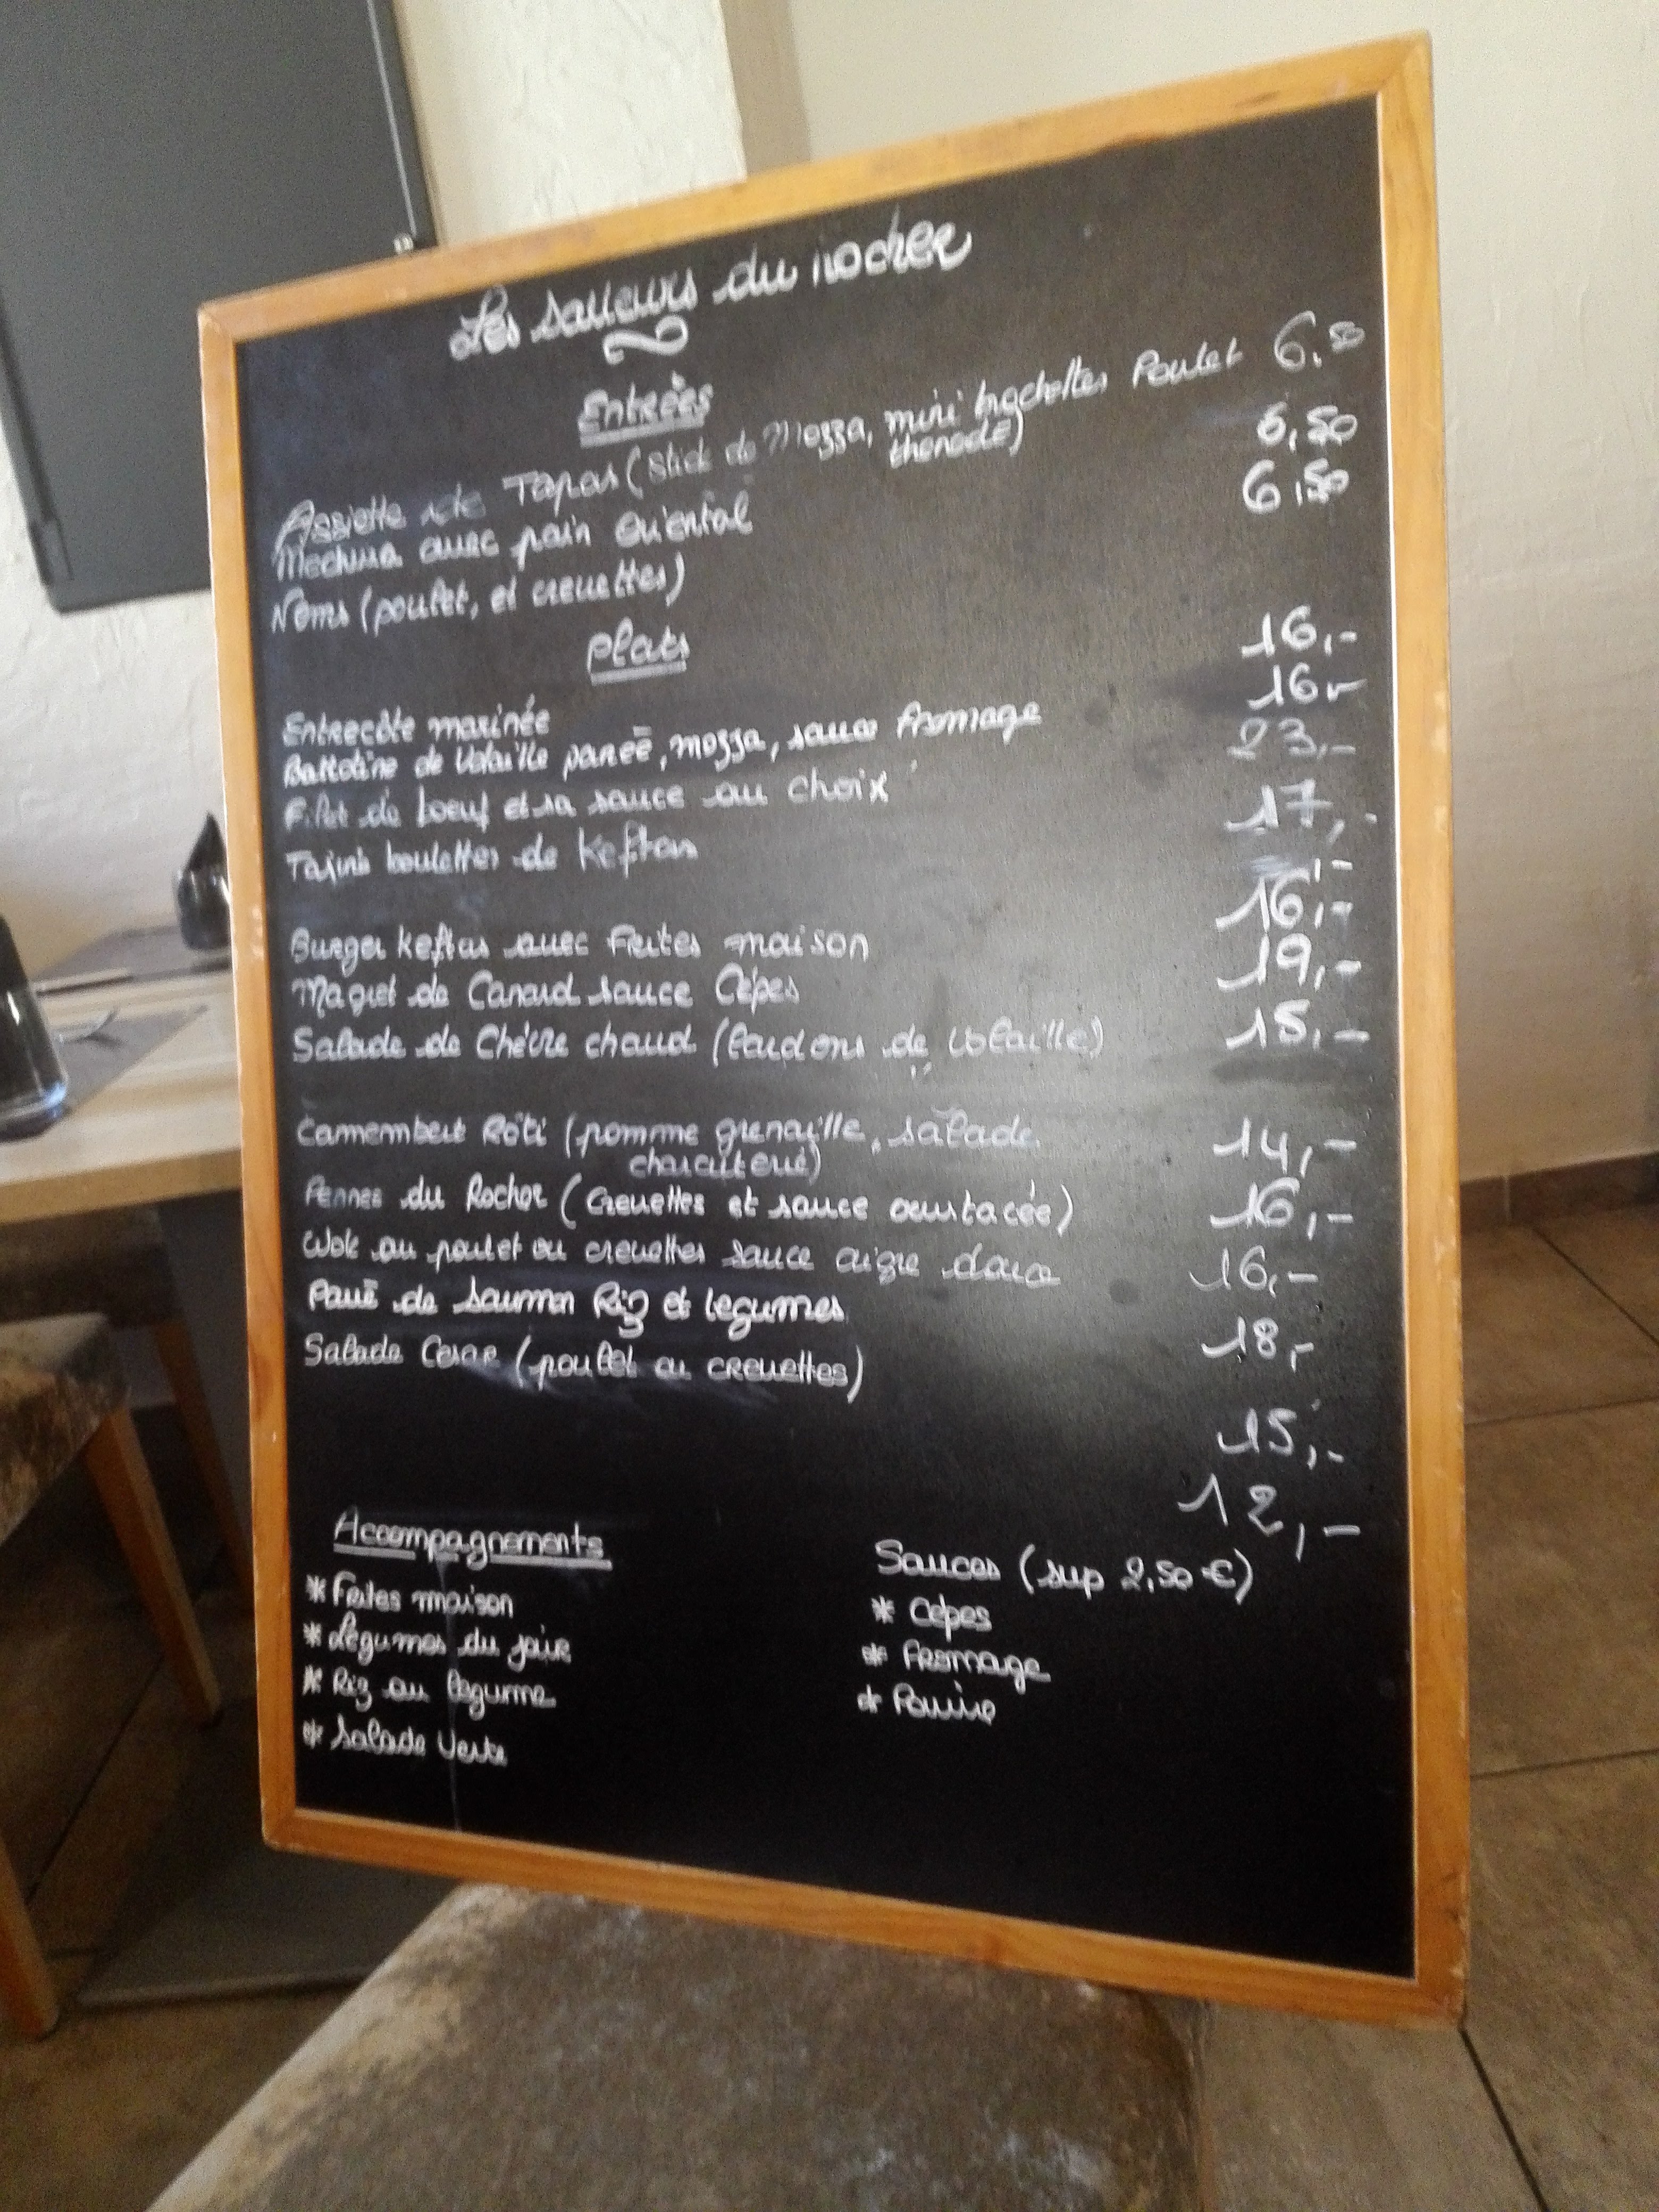 Les saveurs du rocher
Entrées
Assiette de Tapas (Stick de Mozza, mini brochettes Poulet 6.50
Mechwia avec pain Oriental 6,50
Nems (poulet, et crevettes) 6,50
Plats
Entrecôte marinée 16,-
Ballotine de Volaille paneé, mozza, sauce fromage 16,-
Filet de boeuf et sa sauce au choix 23,-
Tajine boulettes de Keftas 17,-
,-
Burger keftas avec Frites maison 16,-
Magret de Canard sauce Cèpes 19,-
Salade de Chèvre chaud (lardons de volaille) 15,-
Camembert Rôti (pomme grenaille, salade 14,-
charcuterie)
Pennes du Rocher (Crevettes et sauce crustacée) 16,-
Wok au poulet ou crevettes sauce aigre douce 16,-
Pavé de saumon Riz et legumes 18,-
Salade Cesar (poulet ou crevettes)
15,-
12,-
Accompagnements
* Frites maison
* Légumes du jour
* Riz au legume
* Salade Verte
Sauces (sup 2,50 €)
* Cèpes
* Fromage
* Poivre